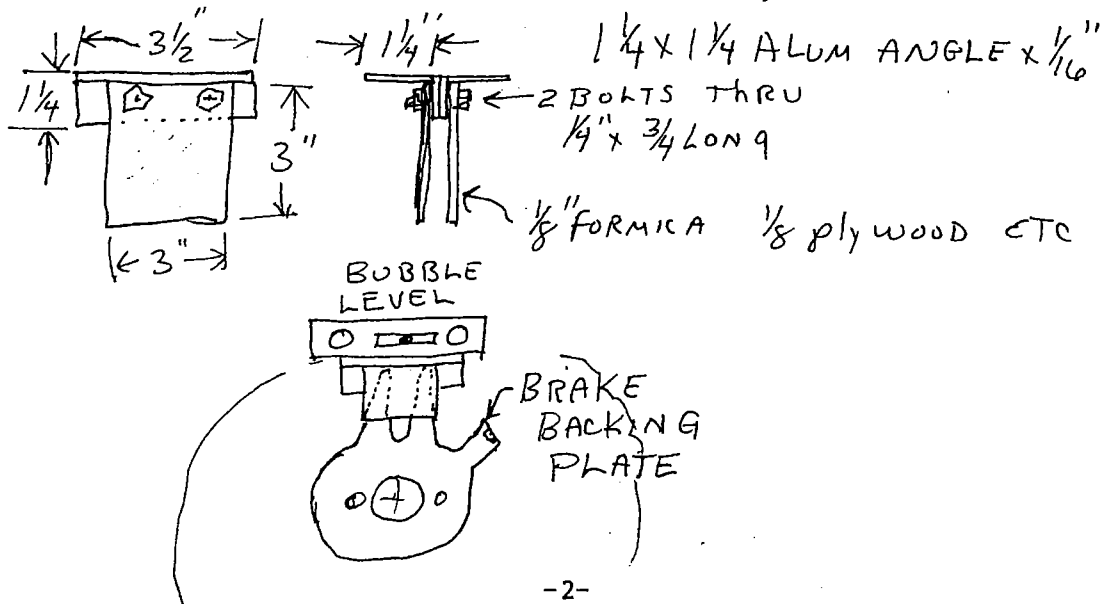 3½"
1¼"
1¼ X 1¼ ALUM ANGLE X 1/16"
1¼
2 BOLTS THRU
¼" X ¾ LONG
3"
⅛" FORMICA ⅛ plywood ETC
3"
BUBBLE
LEVEL
BRAKE
BACKING
PLATE
-2-